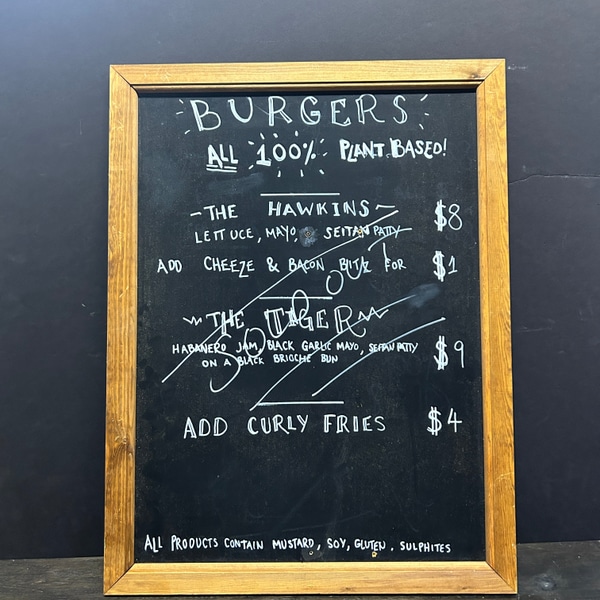 BURGERS
ALL 100% PLANT BASED!
-THE HAWKINS- $8
LETTUCE, MAYO, SEITAN PATTY
ADD CHEEZE & BACON BITZ FOR $1
THE TIGER
HABANERO JAM, BLACK GARLIC MAYO, SEITAN PATTY $9
ON A BLACK BRIOCHE BUN
SOLD OUT
ADD CURLY FRIES $4
ALL PRODUCTS CONTAIN MUSTARD, SOY, GLUTEN, SULPHITES